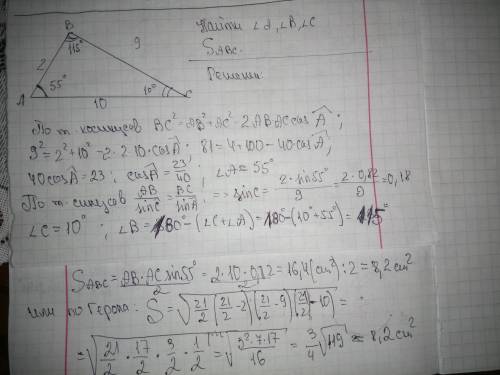 B
115°
9
2
55°
10°
A
10
C
Найти ∠A, ∠B, ∠C
S ABC.
Решение:
По т. косинусов BC² = AB² + AC² - 2AB·AC cos A;
9² = 2² + 10² - 2·2·10·cos A; 81 = 4 + 100 - 40 cos A;
40 cos A = 23; cos A = 23/40; ∠A = 55°
По т. синусов AB/sin C = BC/sin A => sin C = 2·sin55°/9 = 2·0,82/9 = 0,18
∠C = 10°; ∠B = 180° - (∠C + ∠A) = 180° - (10° + 55°) = 115°
S ABC = AB·AC sin55°/2 = 2·10·0,82/2 = 16,4 (см²) : 2 = 8,2 см²
или по Герона: S = √(21/2 (21/2 - 2)(21/2 - 9)(21/2 - 10)) =
= √(21/2 · 17/2 · 3/2 · 1/2) = √(3²·7·17/16) = 3/4 √119 ≈ 8,2 см²